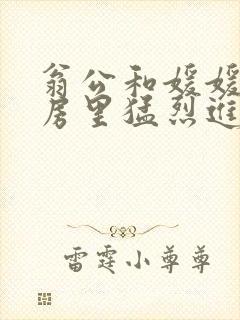 翁公和媛媛
房里猛烈进
雷霆小尊尊